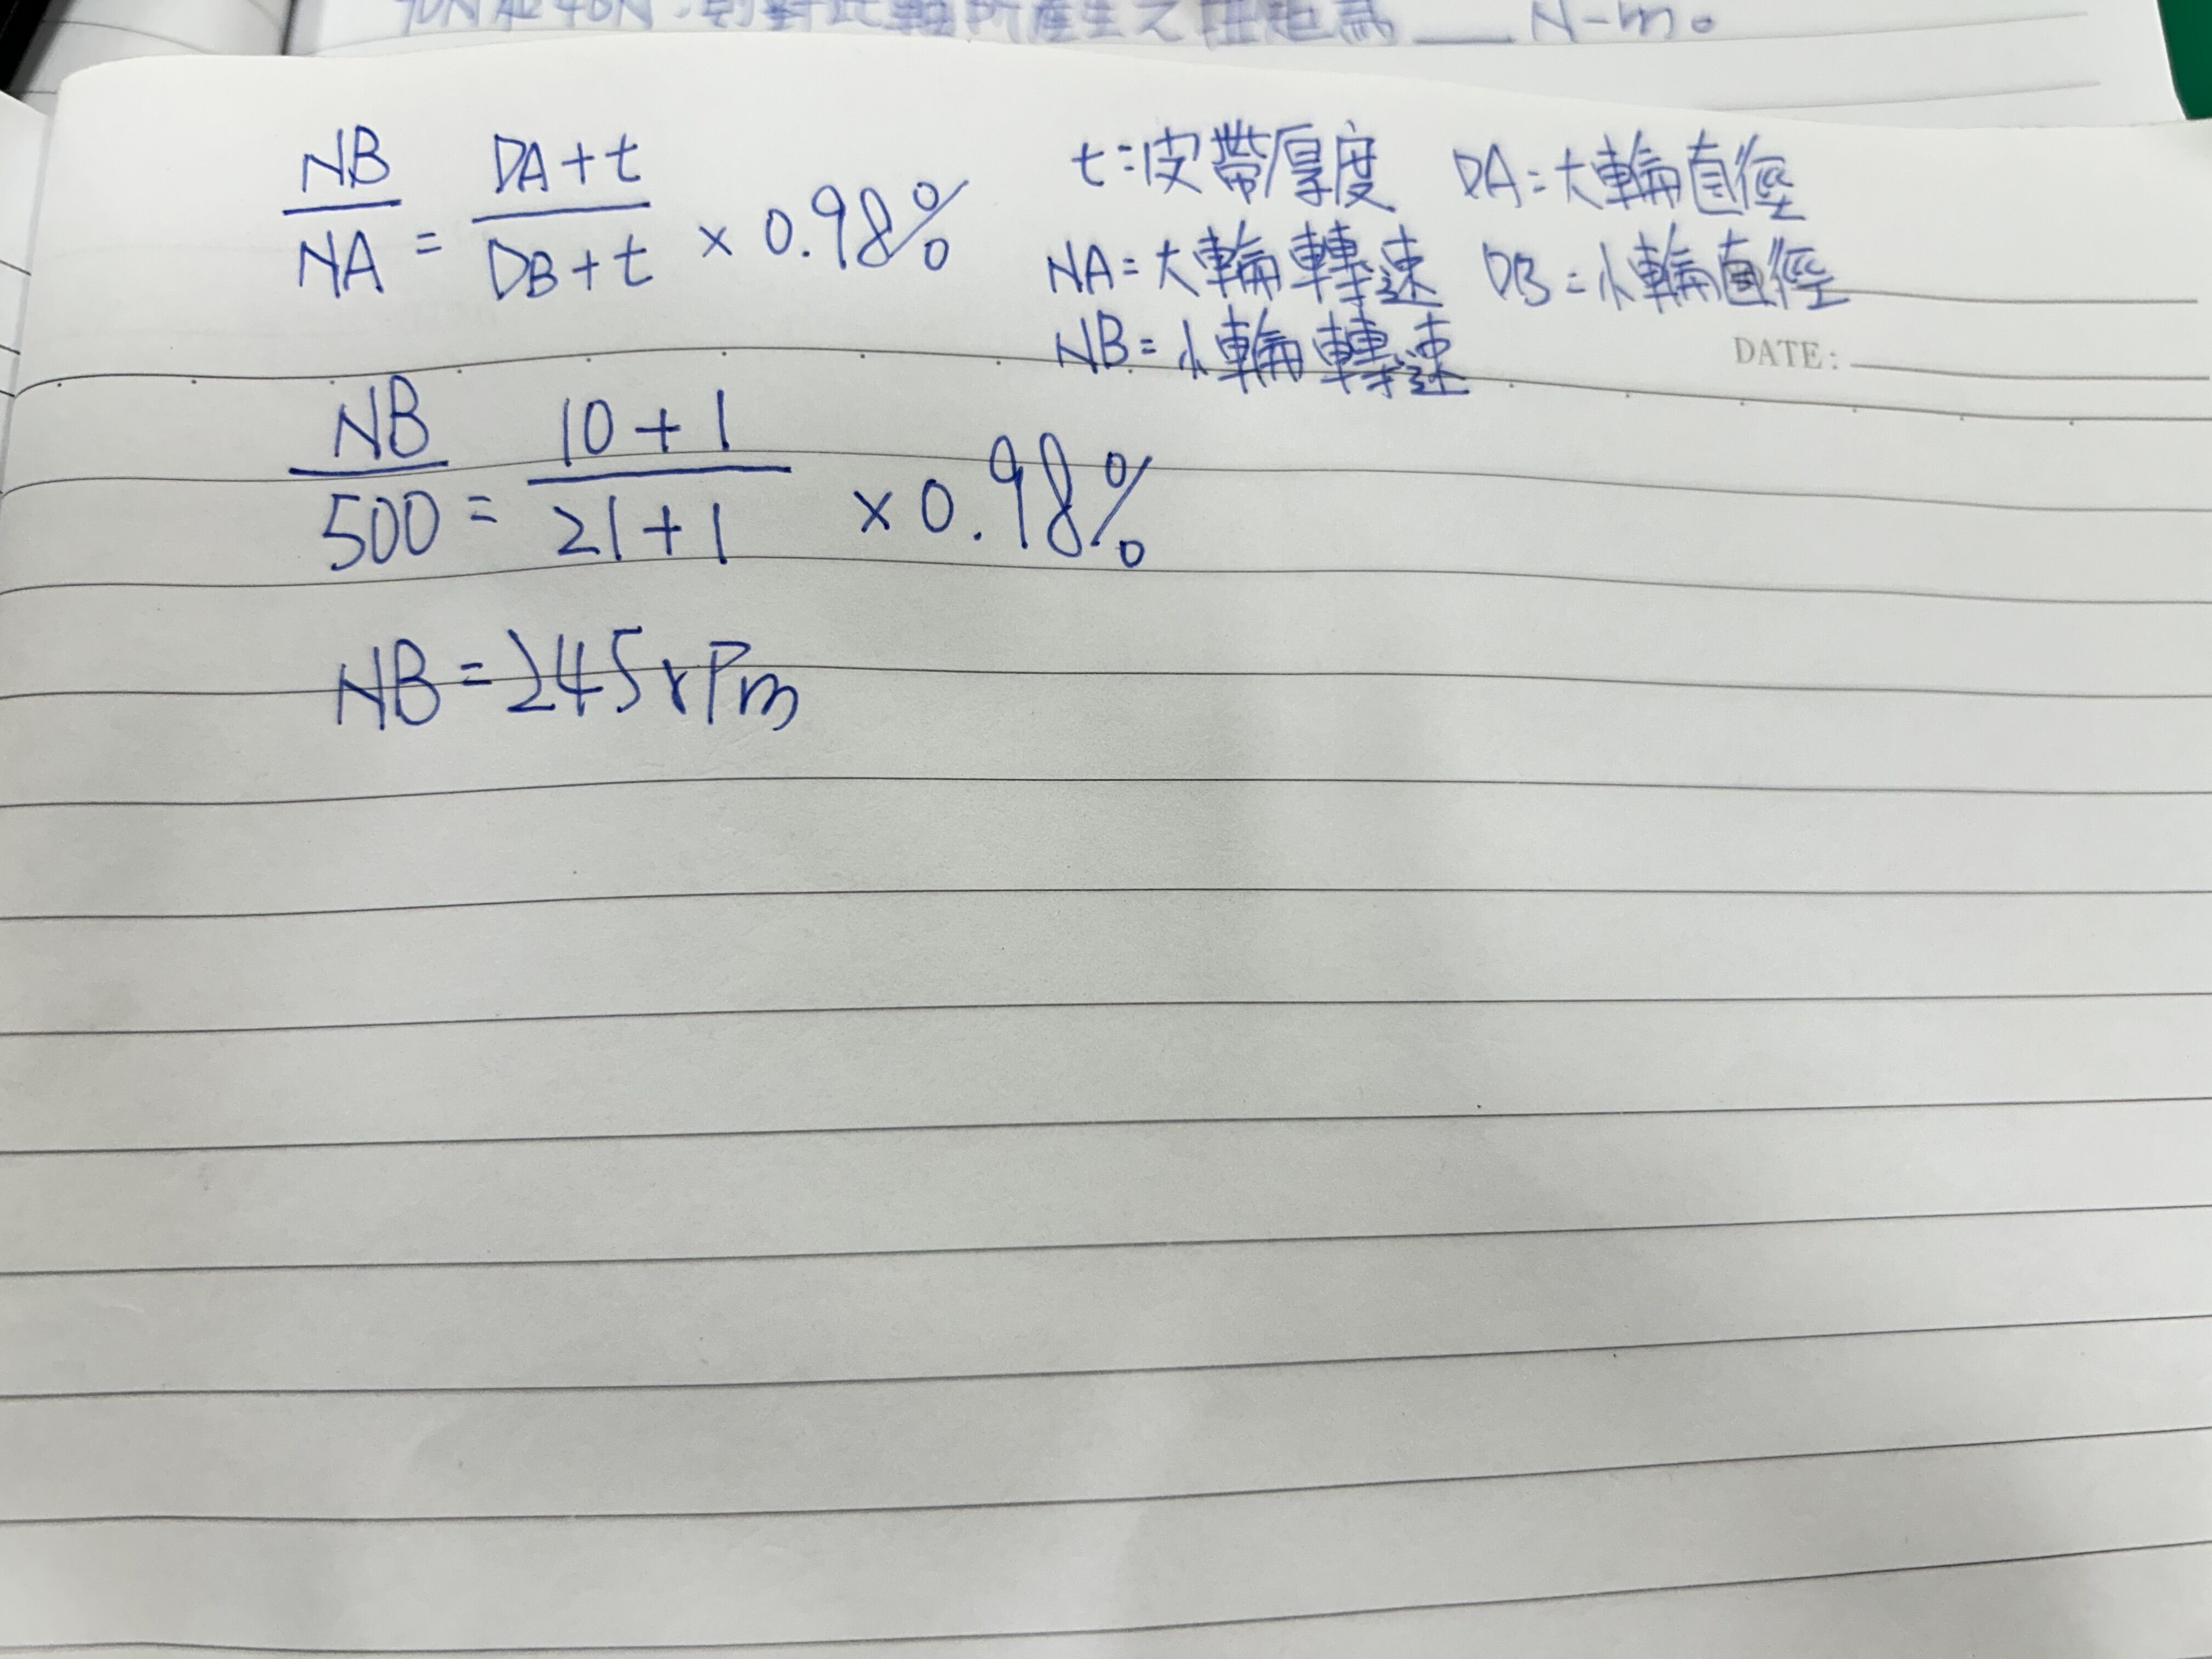 90N和40N,則對此軸所產生之扭矩為___N-m。
NB/NA = DA+t/DB+t × 0.98%
t:皮帶厚度 DA=大輪直徑
NA=大輪轉速 DB=小輪直徑
NB=小輪轉速
DATE:
NB/500 = 10+1/21+1 × 0.98%
NB=245rpm